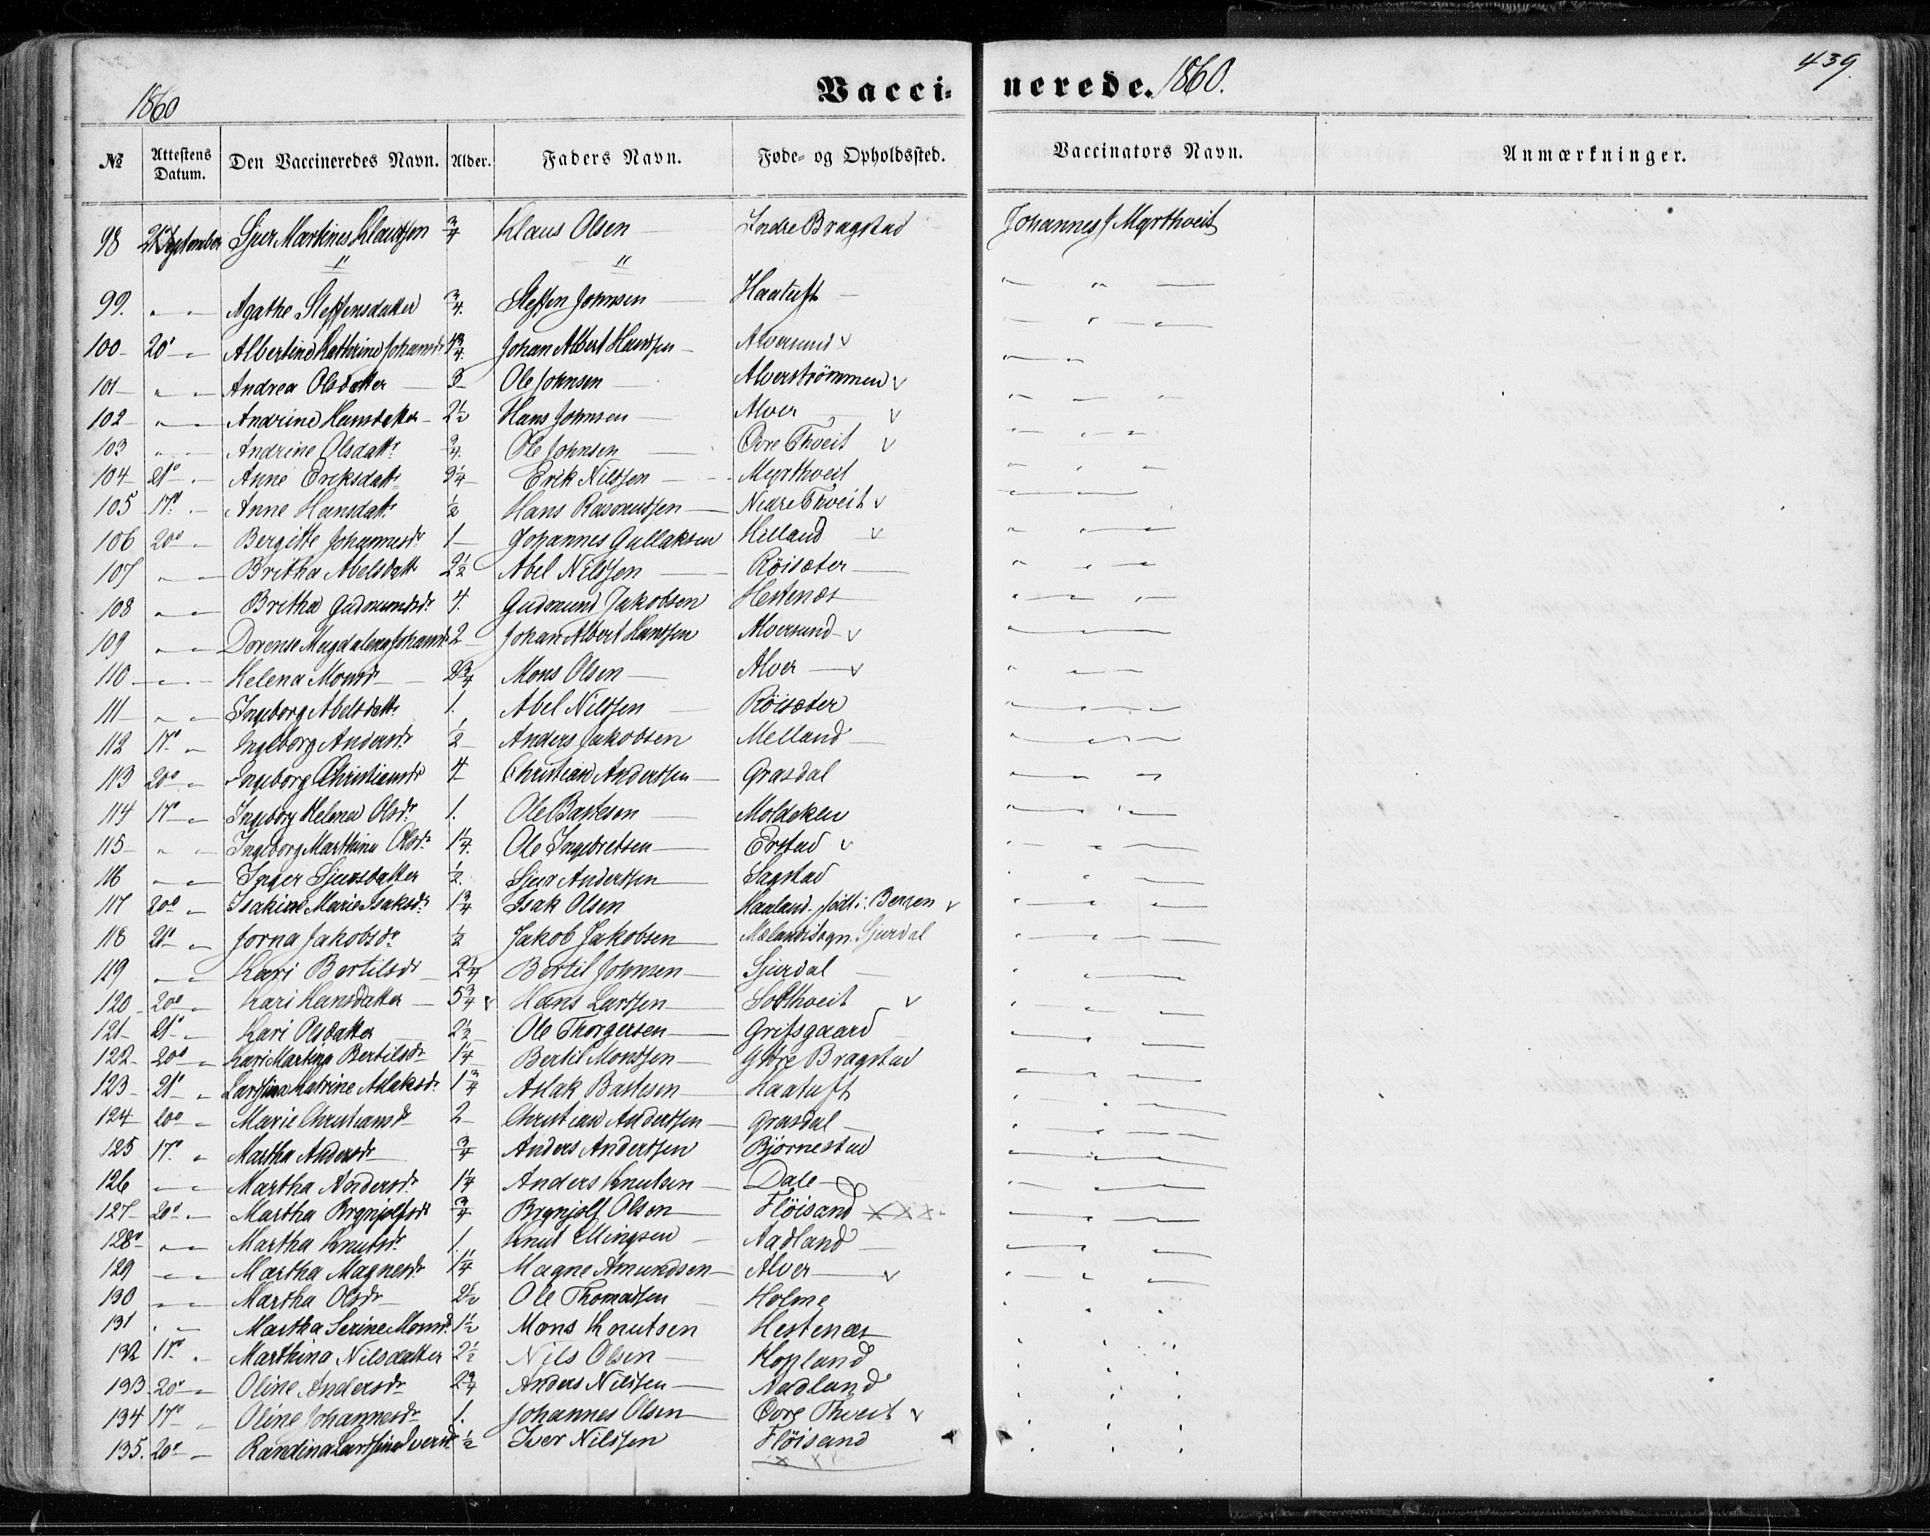 439.
1860 Vacci- nerede. 1860.
№ Attestens Datum. Den Vaccineredes Navn. Alder. Faders Navn. Føde- og Opholdssted. Vaccinators Navn. Anmærkninger.
98 21 September Sjur Martines Klaussen 3/4 Klaus Olsen — Indre Bragstad Johannes Myrthveit
" "
99. " " Agathe Steffensdatter 3/4. Steffen Johnsen — Haatuft —
100 - 20' " Albertine Kathrine Johansdr Johan Albert Hanssen - Alversund v
101 - " " Andrea Olsdatter — 3 Ole Johnsen — Alverstrømmen v
102 - " " Andrine Hansdatter - 2½ Hans Johnsen — Alver v
103 " " Andrine Olsdattr 3/4. Ole Johnsen — Øvre Thveit v
104 - 21° - Anne Eriksdattr 2¼ Erik Nilssen - Myrthveit
105 17° - Anne Hansdattr ½ Hans Rasmussen — Nedre Thveit v
106 20° - Bergitte Johannesdr 1 - Johannes Gullaksen Helland v
107 " " Britha Abelsdattr 2½ Abel Nilssen — Röisæter —
108 " " Britha Gudmundsdr 4. Gudmund Jakobsen Hestenæs —
109 " " Dorense Magdalena Johansdr 2 - Johan Albert Hanssen Alversund - v
110 - " - Helena Monsdr - 2¾ Mons Olsen — Alver — v
111 - " " Ingeborg Abelsdattr 1. Abel Nilssen — Röisæter
112 17° " Ingeborg Andersdr ½ Anders Jakobsen Melland —
113 20° " Ingeborg Christiansdr 4 Christian Anderssen — Grasdal
114 17° " Ingeborg Helena Olsdr 1. Ole Bastesen — Moldekleu
115 - " " Ingeborg Marthina Olsdr 1¼. Ole Ingebretsen — Erstad v
116 " " Inger Sjursdatter ½. Sjur Anderssen — Sagstad
117 20° " Isakine Marie Isaksdr 1¾ Isak Olsen Haaland. födt i Bergen v
118 21° " Jorna Jakobsdr ½ Jakob Jakobsen — Mælandssogn. Sjurdal
119 " Kari Bertilsdr 2¼ Bertil Johnsen — Sjurdal —
120 20° " Kari Hansdatter - 5¾ v Hans Larssen — Solthveit v
121 - 21° " Kari Olsdatter 2½ Ole Thorgersen — Grifsgaard
122 - 20° " Kari Martina Bertilsdr 1¼ Bertil Monssen — Yttre Bragstad
123 - 21° " Larssina Katrine Aslaksdr 1¾ Aslak Bastesen — Haatuft
124 20° " Marie Christiansdr 2 - Christian Anderssen — Grasdal —
125 17° " Martha Andersdr 3/4 Anders Anderssen Björnestad
126 " " Martha Andersdr 1¼ Anders Knutsen — Dale —
127 - 20° " Martha Brynjolfsdr 3/4 Brynjolf Olsen — Flöisand xxx
128 " " Martha Knutsdr 1. Knut Ellingsen - Aadland —
129 " " Martha Magnesdr 1¼ Magne Amundsen — Alver — v
130 " " Martha Olsdr - 2½ Ole Thomassen — Holme
131 " " Martha Serine Monsdr 1½ Mons Knutsen Hestenæs
132 17° " Marthina Nilsdatter 2½ Nils Olsen — Hopland
133. 20° " Oline Andersdr 2¾ Anders Nilssen — Aadland
134 17° " Oline Johannesdr 1. Johannes Olsen — Øvre Thveit v
135. 20° - Randina ½ Iver Nilssen Flöisand
x x x